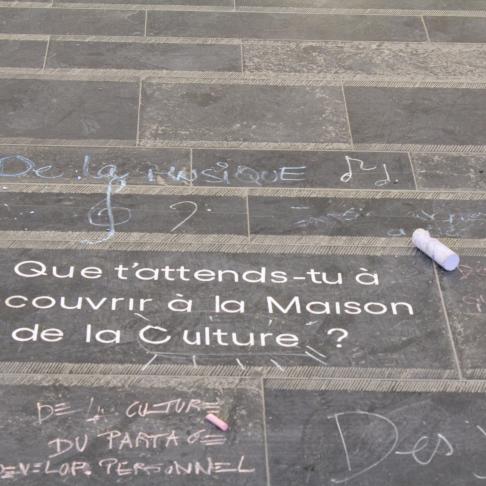 De la MUSIQUE
Que t'attends-tu à
couvrir à la Maison
de la Culture ?
DE LA CULTURE
DU PARTAGE
DEVELOP. PERSONNEL